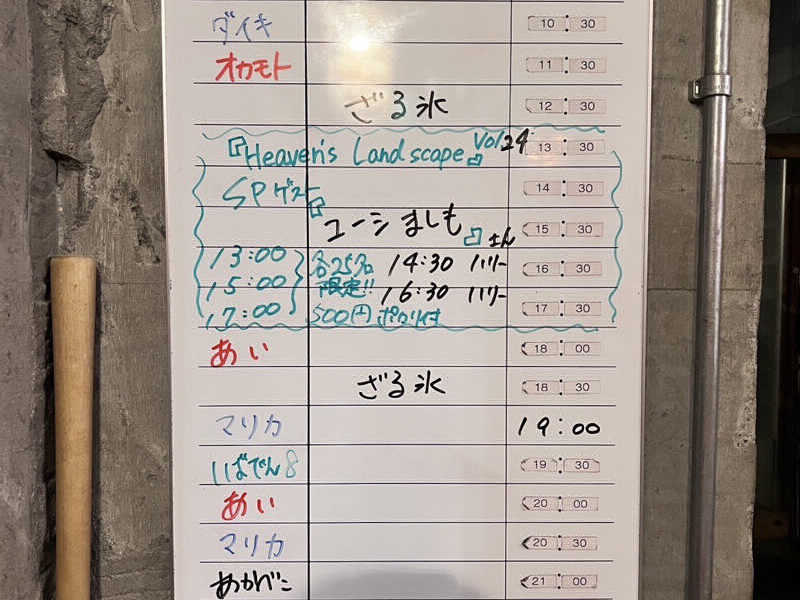 ダイキ 10:30
オカモト 11:30
ざる氷 12:30
『Heaven's Landscape』 Vol.24 13:30
SPゲスト 14:30
『ユージましも』さん 15:30
13:00 各25名 14:30 ハリー 16:30
15:00 限定!! 16:30 ハリー
17:00 500円 ポカリ付 17:30
あい 18:00
ざる氷 18:30
マリカ 19:00
いばでん8 19:30
あい 20:00
マリカ 20:30
あかべこ 21:00